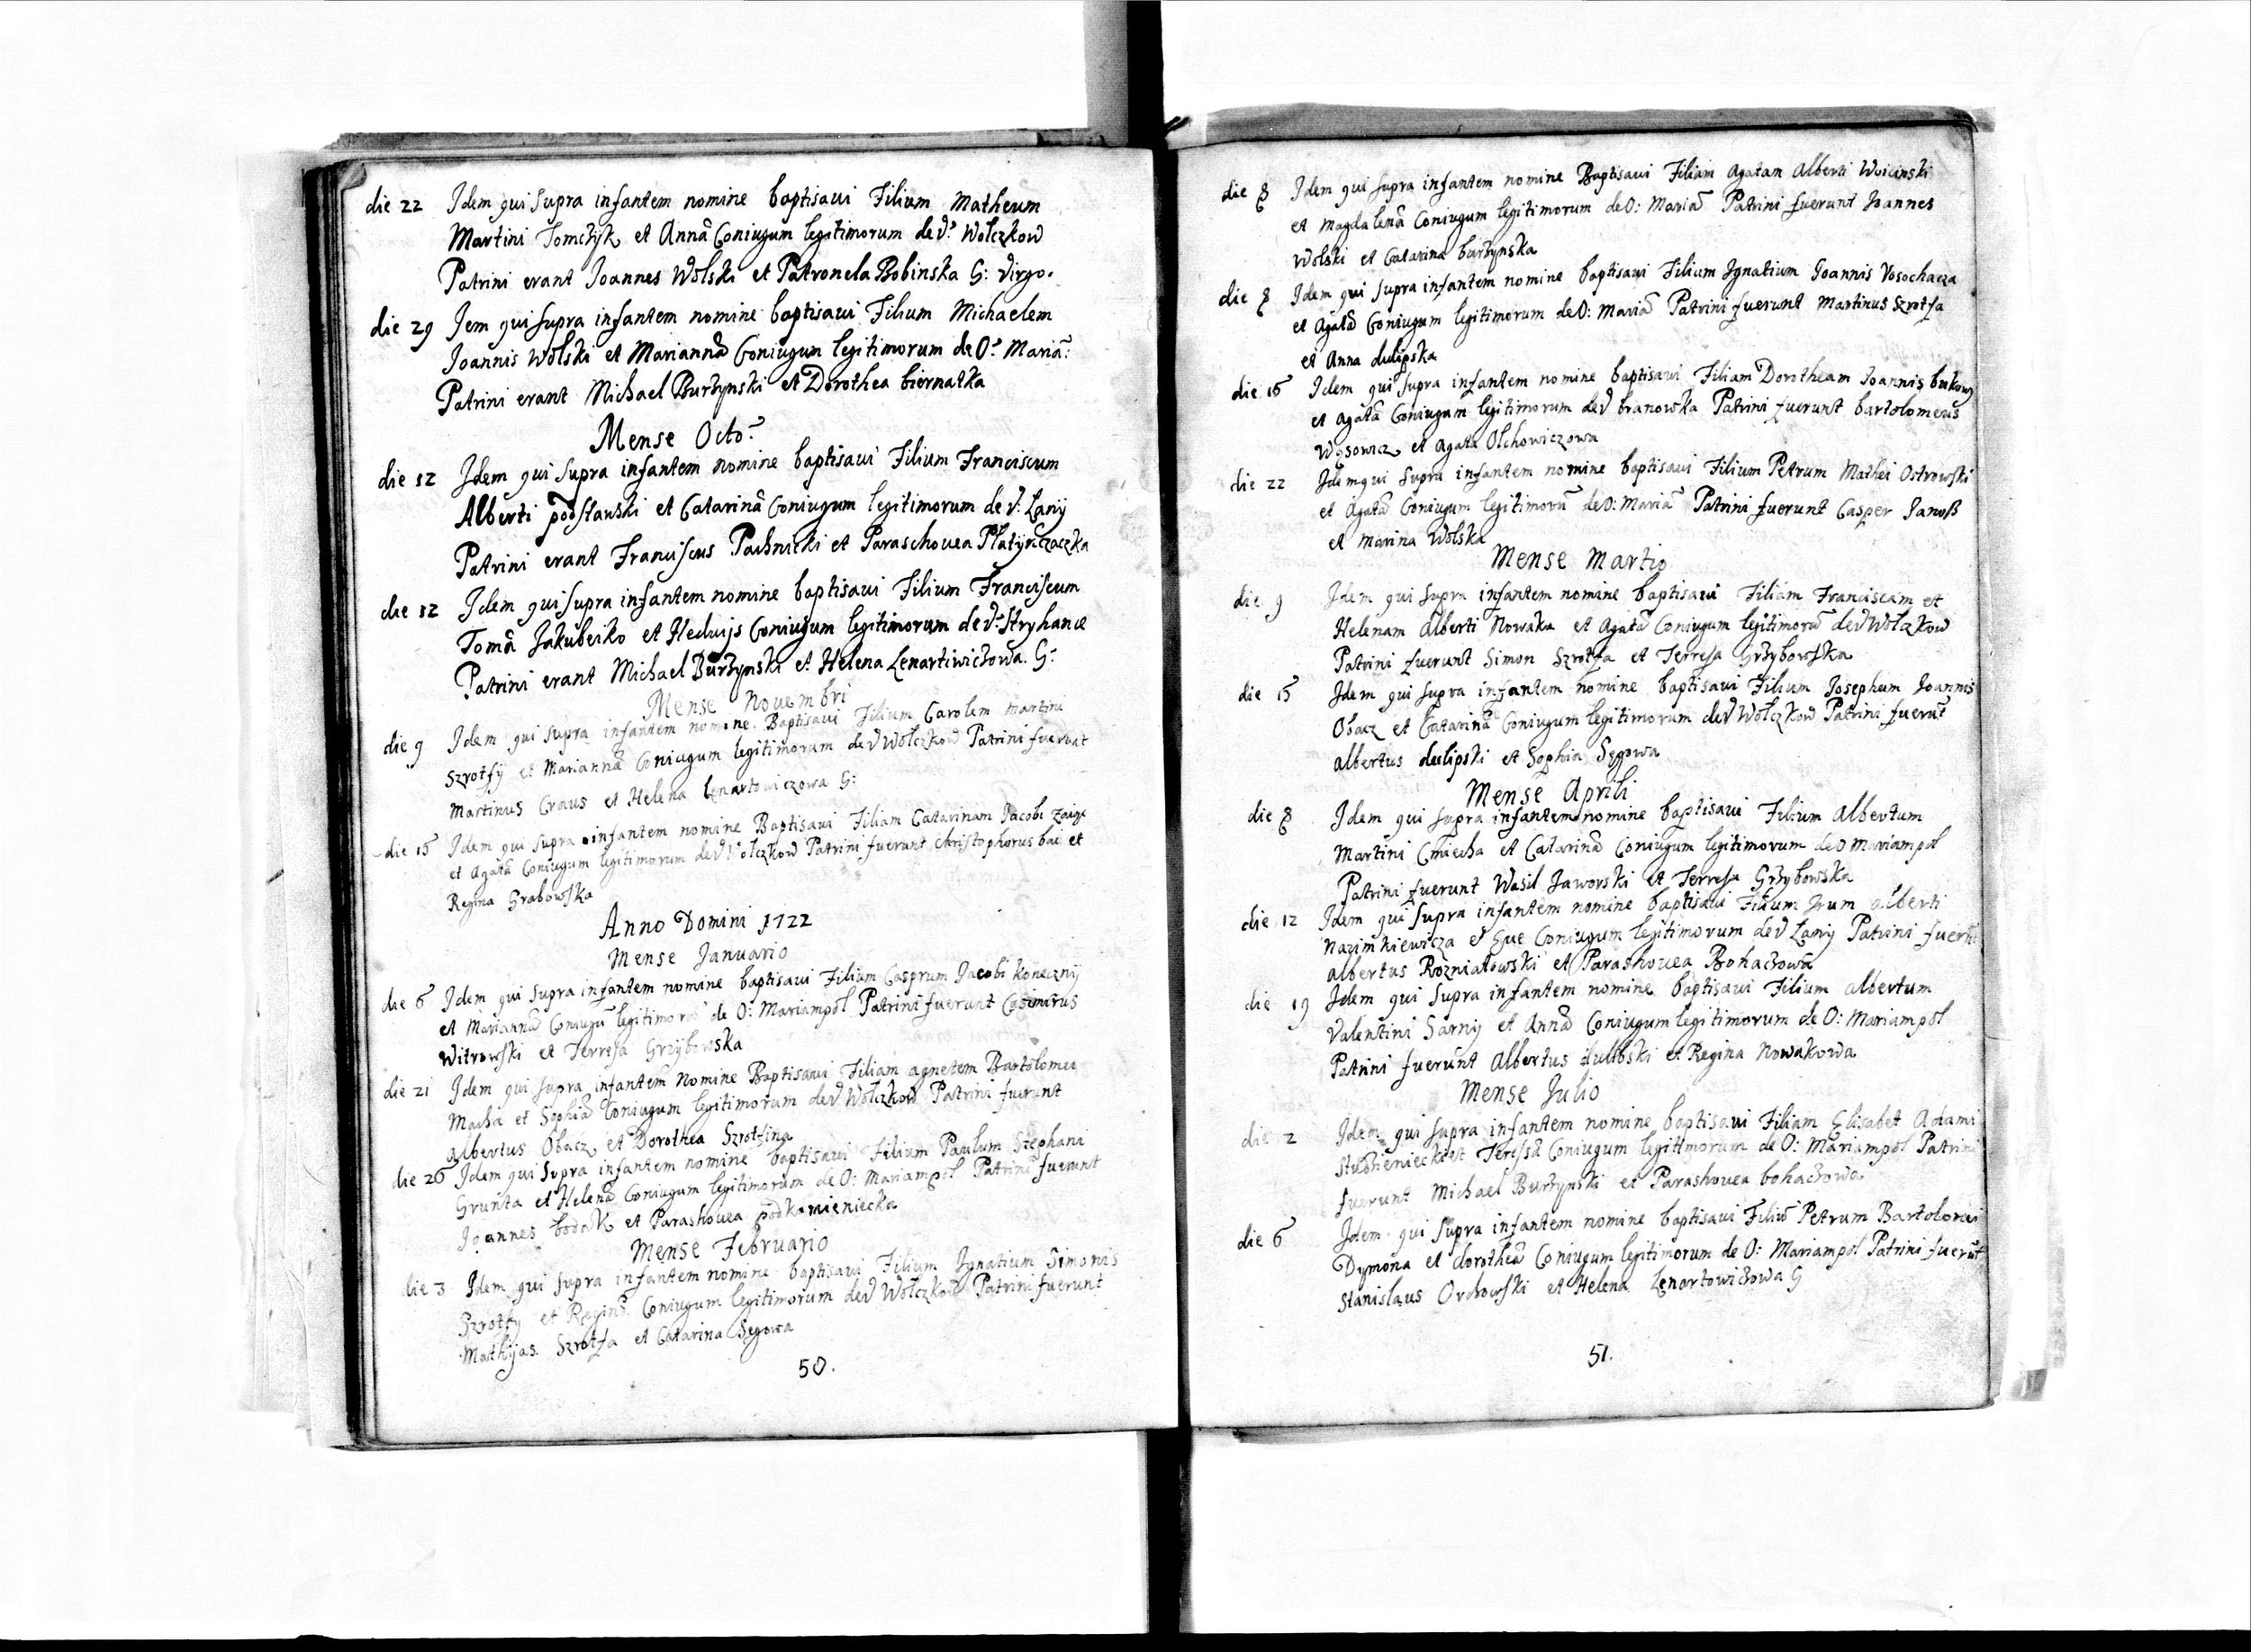 die 22 Idem qui supra infantem nomine baptisavi Filium Matheum
Martini Tomczyk et Annã Coniugum legitimorum de V: Wolczkow
Patrini erant Joannes Wolski et Patronela Bobinska G: Virgo.
die 29 Iem qui supra infantem nomine baptisavi Filium Michaelem
Joannis Wolski et Mariannã Coniugum legitimorum de O: Mariã:
Patrini erant Michael Burzynski et Dorothea biernatka
Mense Octo:
die 12 Idem qui supra infantem nomine baptisavi Filium Franciscum
Alberti podstawski et Catarinã Coniugum legitimorum de V: Lany
Patrini erant Franciscus Pachnicki et Paraschouea
die 12 Idem qui supra infantem nomine baptisavi Filium Franciscum
Tomã Jakubeiko et Heduijs Coniugum legitimorum de V: Stryhance
Patrini erant Michael Burzynski et Helena Lenartiwiczowa. G:
Mense Nouembri
die 9 Idem qui supra infantem nomine Baptisaui Filium Carolem Martini
Szrotfy et Mariannã Coniugum legitimorum de V Wolczkow Patrini fuerunt
Martinus Craus et Helena Lenartowiczowa G:
die 15 Idem qui supra infantem nomine Baptisavi Filiam Catarinam Jacobi
et Agatã Coniugum legitimorum de V Wolczkow Patrini fuerunt Christophorus bai et
Regina Grabowska
Anno Domini 1722
Mense Januario
die 6 Idem qui supra infantem nomine baptisaui Filium Casprum Jacobi Koneczny
et Mariannã Coniugũ legitimorũ de O: Mariampol Patrini fuerunt Casimirus
Witrowski et Terresa Grzybowska
die 21 Idem qui supra infantem Nomine Baptisaui Filiam agnetem Bartolomei
Macha et Sophiã Coniugum legitimorum de V Wolczkow Patrini fuerunt
Albertus Obacz et Dorothea Szrotfina
die 26 Idem qui Supra infantem nomine baptisaui Filium Paulum Szephani
Grunta et Helenã Coniugum legitimorum de O: Mariampol Patrini fuerunt
Joannes bodak et Parashouea podkamieniecka
Mense Februario
die 3 Idem qui supra infantem nomine baptisaui Filium Ignatium Simonis
Szrotfy et Reginã Coniugum legitimorum de V Wolczkow Patrini fuerunt
Mathyas Szrotfa et Catarina Segowa
50.
die 8 Idem qui supra infantem nomine Baptisaui Filiam Agatam Alberti Woicinski
et Magdalenã Coniugum legitimorum de O: Mariã Patrini fuerunt Joannes
Wolski et Catarina burzynska
die 8 Idem qui supra infantem nomine baptisaui Filium Ignatium Joannis Vosochacza
et Agatã Coniugum legitimorum de O: Mariã Patrini fuerunt Martinus Szrotfa
et Anna dulipska
die 15 Idem qui supra infantem nomine baptisaui Filiam Dorotheam Joannis
et Agatã Coniugum legitimorum de V branowska Patrini fuerunt bartolomeus
Wąsowicz et Agata Olchowiczowa
die 22 Idem qui Supra infantem nomine baptisaui Filium Petrum Mathei Ostrowski
et Agatã Coniugum legitimorũ de O: Mariã Patrini fuerunt Casper Janoß
et Marina Wolska
Mense Martio
die 9 Idem qui supra infantem nomine baptisaui Filiam Franciscam et
Helenam Alberti Nowaka et Agatã Coniugum legitimorũ de V Wolczkow
Patrini fuerunt Simon Szrotfa et Terresa Grzybowska
die 15 Idem qui supra infantem nomine baptisaui Filium Josephum Joannis
Obacz et Catarinã Coniugum legitimorum de V Wolczkow Patrini fuerũt
albertus dulipski et Sophia Segowa
Mense Aprili
die 8 Idem qui supra infantem nomine baptisaui Filium Albertum
Martini Cmiecha et Catarinã Coniugum legitimorum de O Mariampol
Patrini fuerunt Wasil Jaworski et Terresa Grzybowska
die 12 Idem qui supra infantem nomine baptisaui Filium alberti
Nazimkiewicza et Eue Coniugum legitimorum de V Lany Patrini fuerũt
albertus Rozniatowski et Parashouea Bohaczowa
die 19 Idem qui supra infantem nomine baptisaui Filium albertum
Valentini Sarny et Annã Coniugum legitimorum de O: Mariampol
Patrini fuerunt Albertus dulibski et Regina Nowakowa
Mense Julio
die 2 Idem qui supra infantem nomine baptisaui Filiam Elisabet Adami
Studzienieckiest Teressã Coniugum legittmorum de O: Mariampol Patrini
fuerunt Michael Burzynski et Parashouea bohaczowa
die 6 Idem qui supra infantem nomine baptisaui Filiũ Petrum Bartolomei
Dymona et dorotheã Coniugum legitimorum de O: Mariampol Patrini fuerũt
Stanislaus Orchowski et Helena Lenartowiczowa G
51.